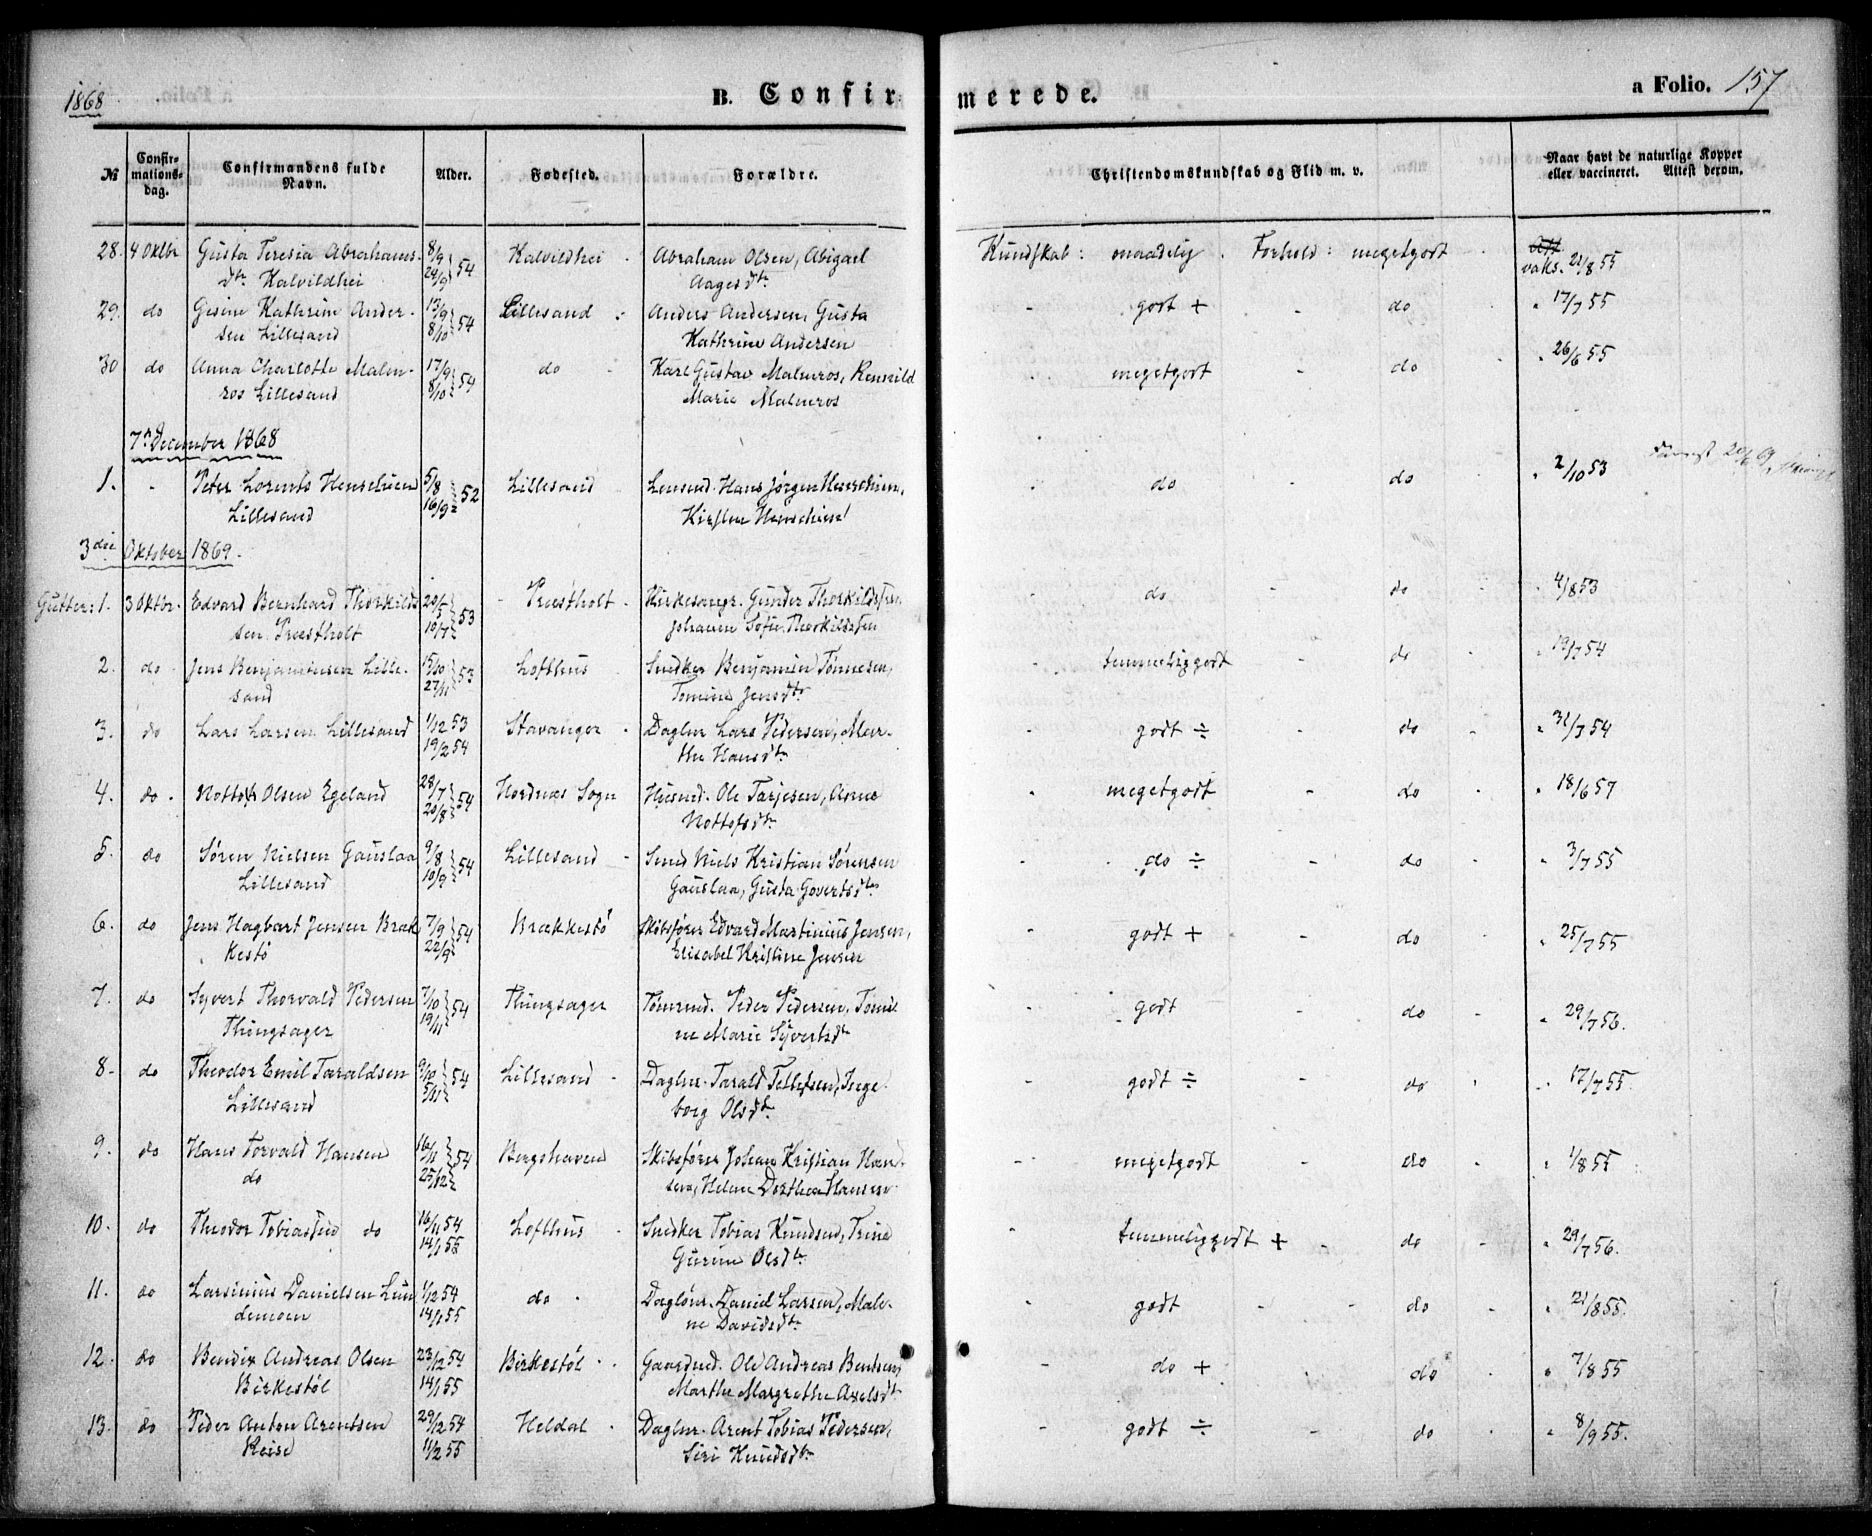 1868
B. Confirmerede.
a Folio. 157
№ Confir-mations-dag. Confirmandens fulde Navn. Alder. Fødested. Forældre. Christendomskundskab og Flid m. v. Naar havt de naturlige Kopper eller vaccineret. Attest derom.
28. 4 Oktbr Gusta Teresia Abrahams 8/9 54 Kalvildhei Abraham Olsen, Abigael Kundskab: maadelig. Forhold: megetgodt vaks. 21/8 55
dtr Kalvildhei 24/9 Aagesdtr
29. do Gesine Kathrine Ander- 13/9 54 Lillesand Anders Andersen, Gusta - godt + - do " 17/7 55
sen Lillesand 8/10 Kathrine Andersen
30 do Anna Charlotte Malm- 17/9 54 do Karl Gustav Malmros, Renvild megetgodt - do " 26/6 55
ros Lillesand 8/10 Marie Malmros
7de December 1868
1. - Peter Lorents Henschien 5/8 52 Lillesand Lensmd. Hans Jørgen Henschien, - do do " 2/10 53
Lillesand 16/9 Kirsten Henschien
3die Oktober 1869.
Gutter: 1. 3 Oktbr. Edvard Bernhard Thorkilds 20/5 53 Præstholt Kirkesangr. Gunder Thorkildsen - do - do 4/8 53
sen Præstholt 10/7 Johanne Sofie Thorkildsen
2. do Jens Benjaminsen Lille- 15/10 53 Lofthus Snedker Benjamin Tønnesen, temmeliggodt - do " 19/7 54
sand 27/11 Tomine Jensdtr
3. do Lars Larsen Lillesand 1/12 53 Stavanger Daglnr Lars Pedersen, Mar- - godt ÷ - do " 31/7 54
19/2 54 the Hansdtr
4. do. Nottof Olsen Egeland 28/7 54 Hordnæs Sogn Husmd. Ole Tarjesen, Asne - megetgodt - do " 18/6 57
20/8 Nottofsdtr
5. do Søren Nielsen Gauslaa 9/8 54 Lillesand Smed Niels Kristian Sørensen - do ÷ - do " 3/7 55
Lillesand 10/9 Gauslaa, Gusta Govertsdtr
6. do Jens Hagbart Jensen Bræk 7/9 54 Brækkestø Skibsfører Edvard Martinius Jensen, - godt + - do " 25/7 55
kestø 22/9 Elisabet Kristine Jensen
7. do Syvert Thorvald Pedersen 7/10 54 Thingsager Tømrmd. Peder Pedersen, Tomi - godt do " 29/7 56.
Thingsager 19/11 ne Marie Syvertsdtr
8. do Theodor Emil Taraldsen 9/10 54 Lillesand Daglnr. Tarald Tellefsen, Inge - godt ÷ - do " 17/7 55.
Lillesand 5/11 borg Olsdtr
9. do Hans Torvald Hansen 16/11 54 Bergshaven Skibsfører Johan Kristian Han - megetgodt - do " 1/8 55
do 25/12 sen, Helene Dorthea Hansen
10. do Theodor Tobiassen do 16/11 54 Lofthus Snedker Tobias Knudsen, Trine - temmeliggodt + - do " 29/7 56.
14/1 55 Gurine Olsdtr
11. do Larsinius Danielsen Lun 1/12 54 do Daglønr. Daniel Larsen, Male- - godt - - do " 21/8 55.
demoen 14/1 55 ne Davidsdtr
12. do Bendix Andreas Olsen 23/12 54 Birkestøl Gaardmd. Ole Andreas Bentsen, - do + do " 7/8 55
Birkestøl 14/1 55 Marthe Margrethe Axelsdtr
13. do Peder Anton Arentsen 29/12 54 Heldal Daglnr. Arent Tobias Pedersen, - godt ÷ - do " 8/9 55.
11/2 55 Siri Knudsdtr